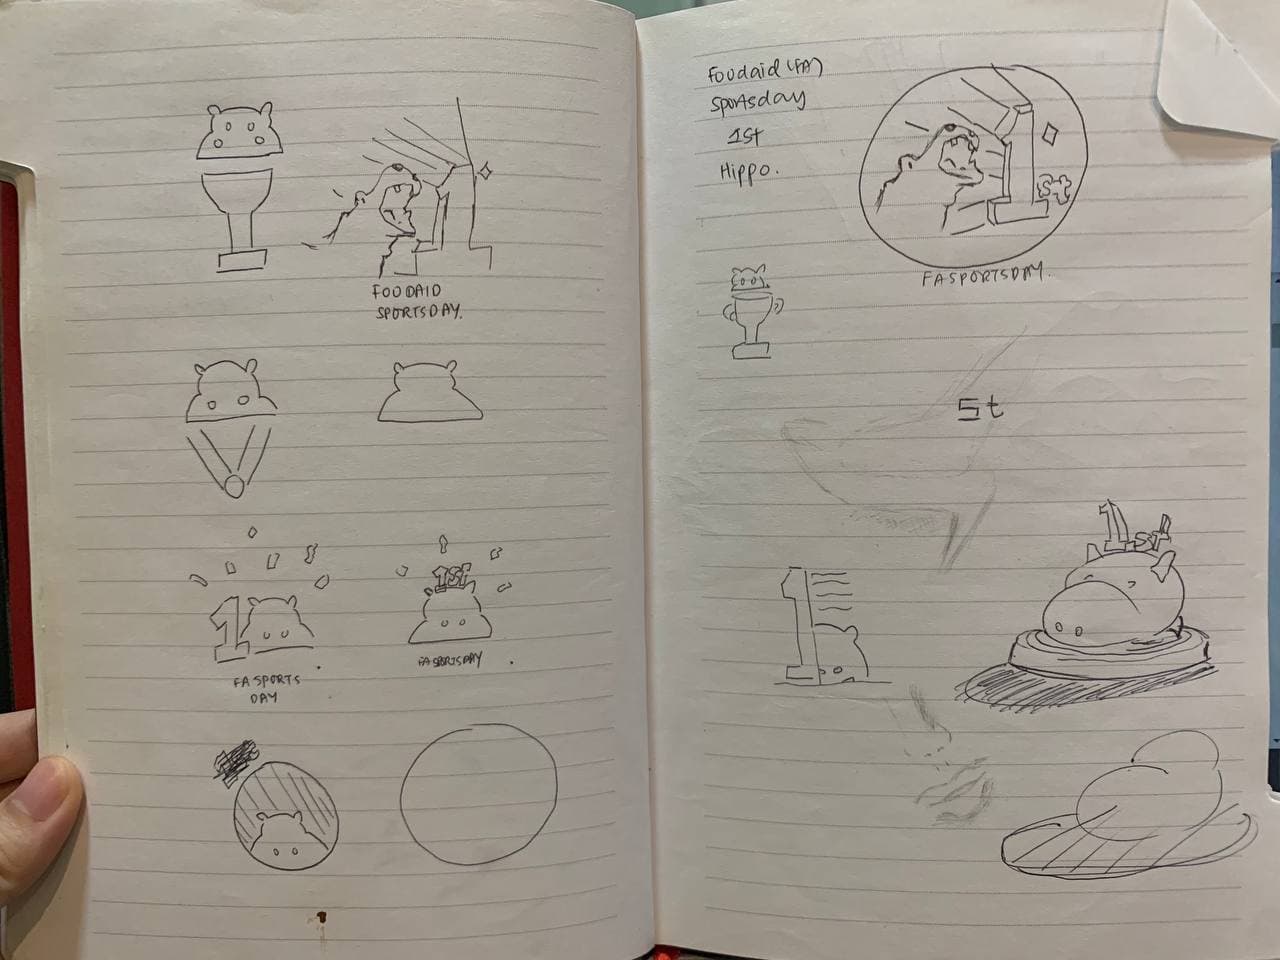 FOODAID
SPORTSDAY.
1
1ST
FA SPORTS
DAY
FA SPORTSDAY
Foodaid (FA)
Sportsday
1st
Hippo.
1st
FA SPORTSDAY.
St
1st
1